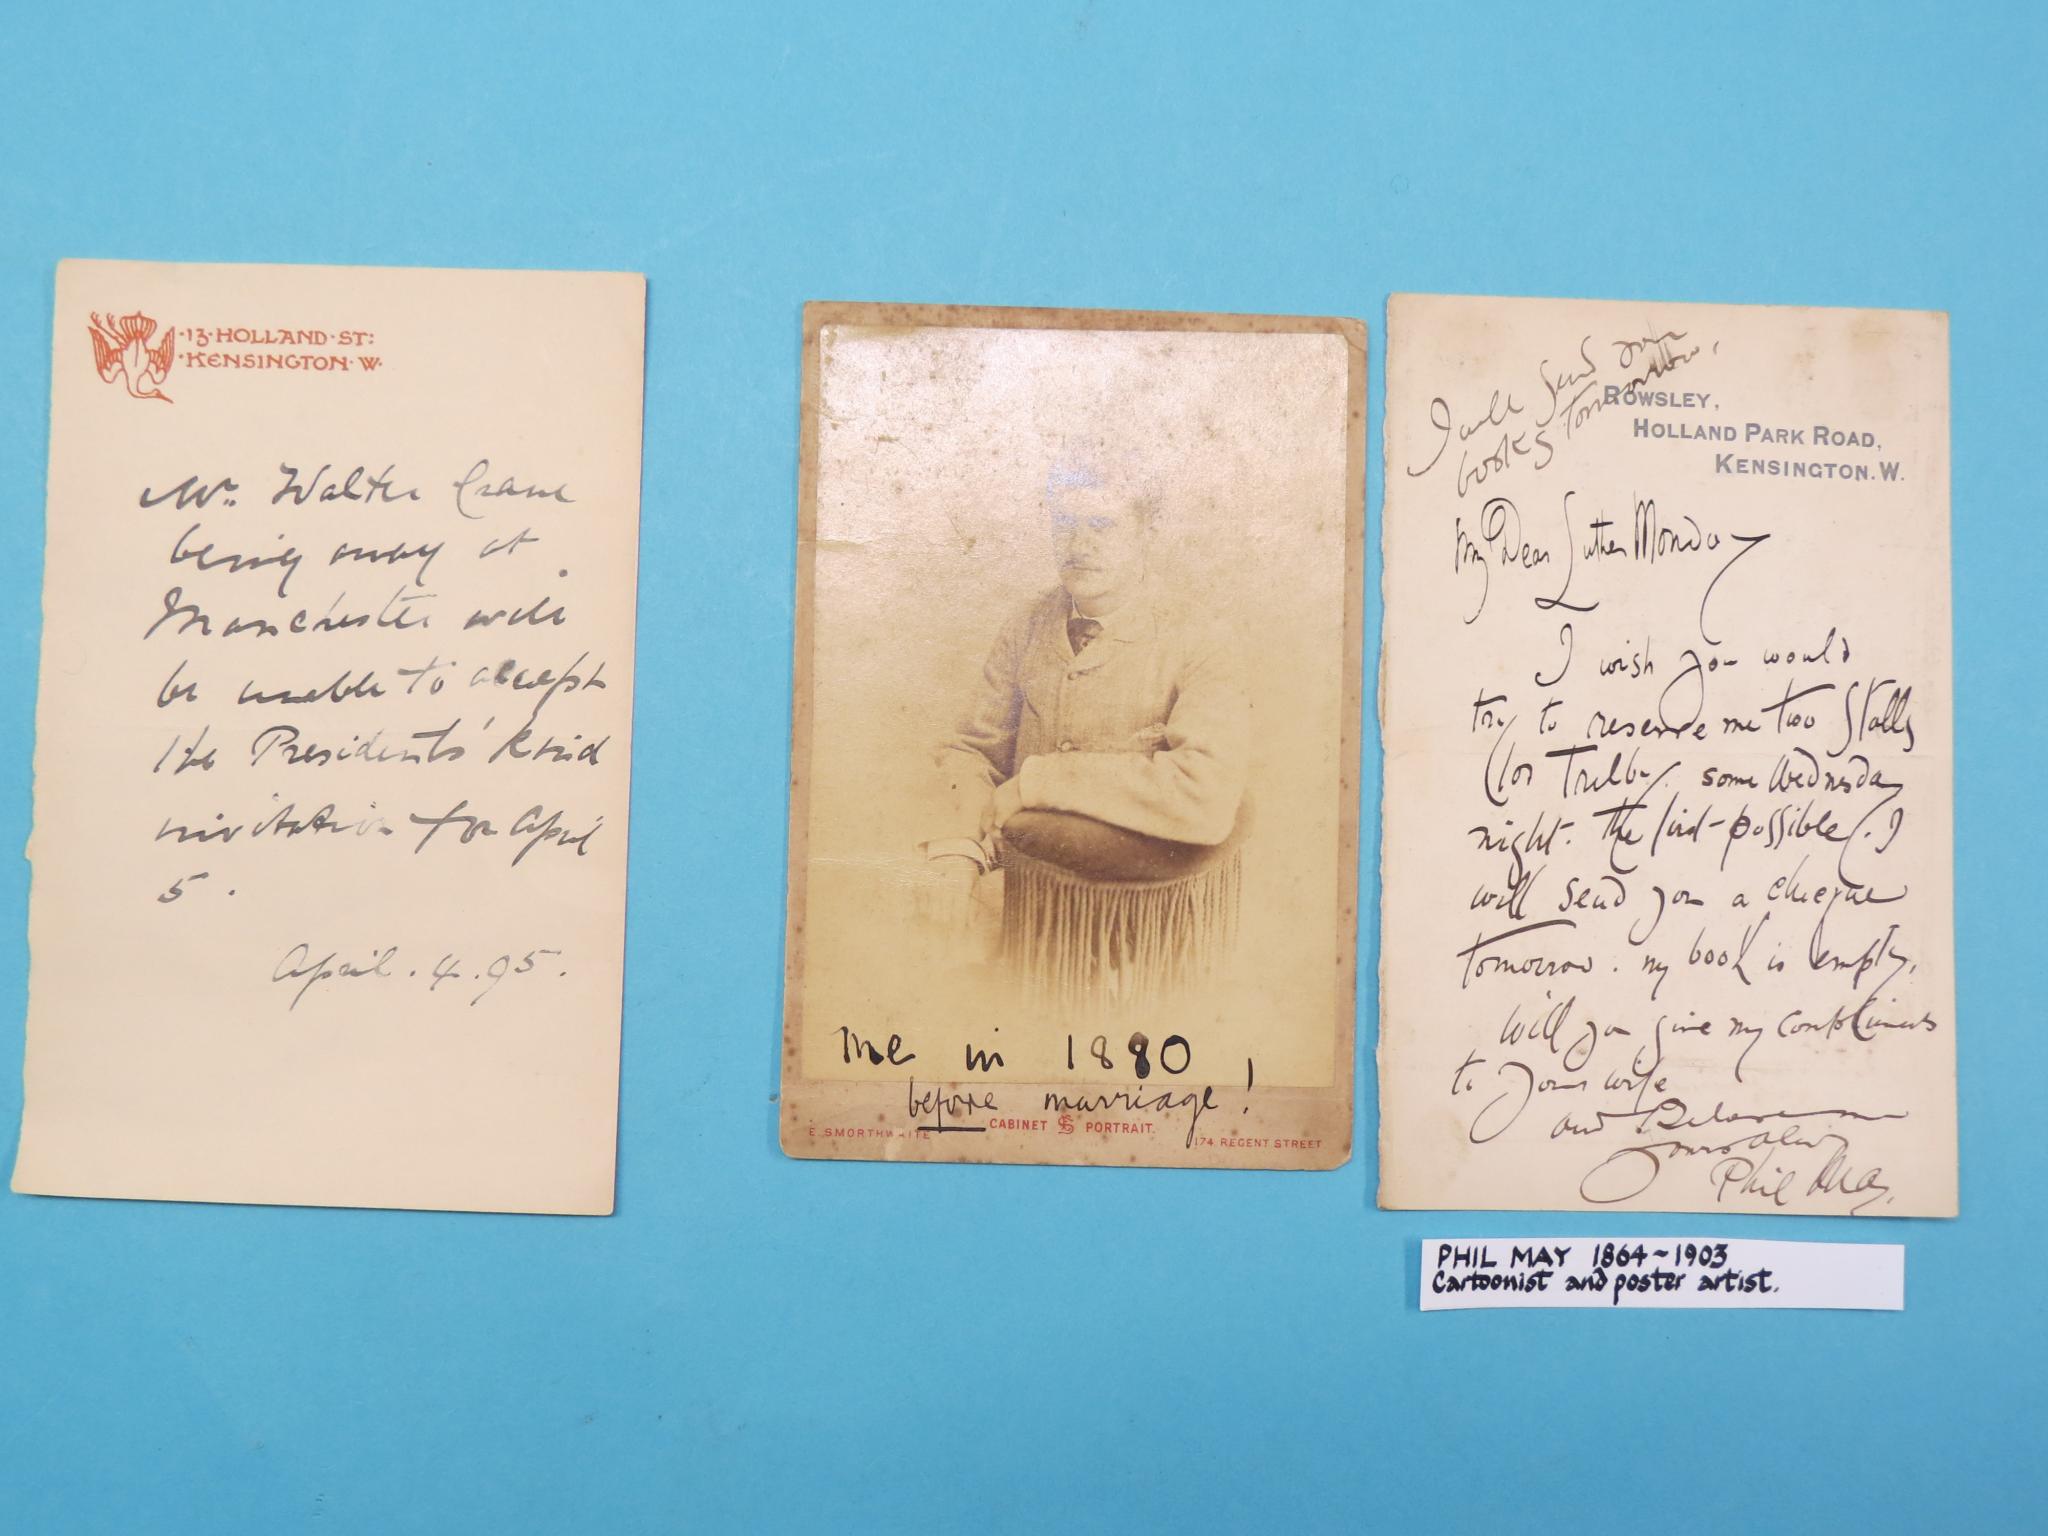 ·13·HOLLAND·ST:
·KENSINGTON·W·
Mr. Walter Crane
being away at
Manchester will
be unable to accept
the Presidents' kind
invitation for April
5.
April. 4. 95.
me in 1880
before marriage!
E. SMORTHWAITE CABINET PORTRAIT. 174 REGENT STREET
I will send your
books tomorrow.
ROWSLEY,
HOLLAND PARK ROAD,
KENSINGTON. W.
My Dear Luther Munday
I wish you would
try to reserve me two Stalls
for Trilby. some Wednesday
night. The first possible. I
will send you a cheque
tomorrow. my book is empty.
Will you give my compliments
to your wife
and Believe me
yours
Phil May.
PHIL MAY 1864~1903
Cartoonist and poster artist.